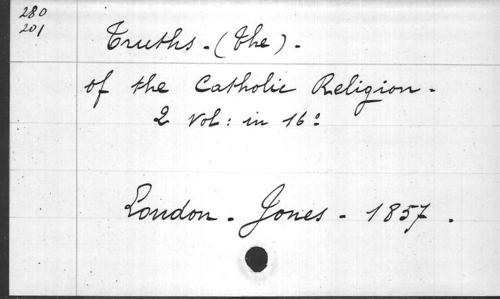 280
201
Truths - (the) -
of the Catholic Religion -
2 vol: in 16º
London - Jones - 1857 .